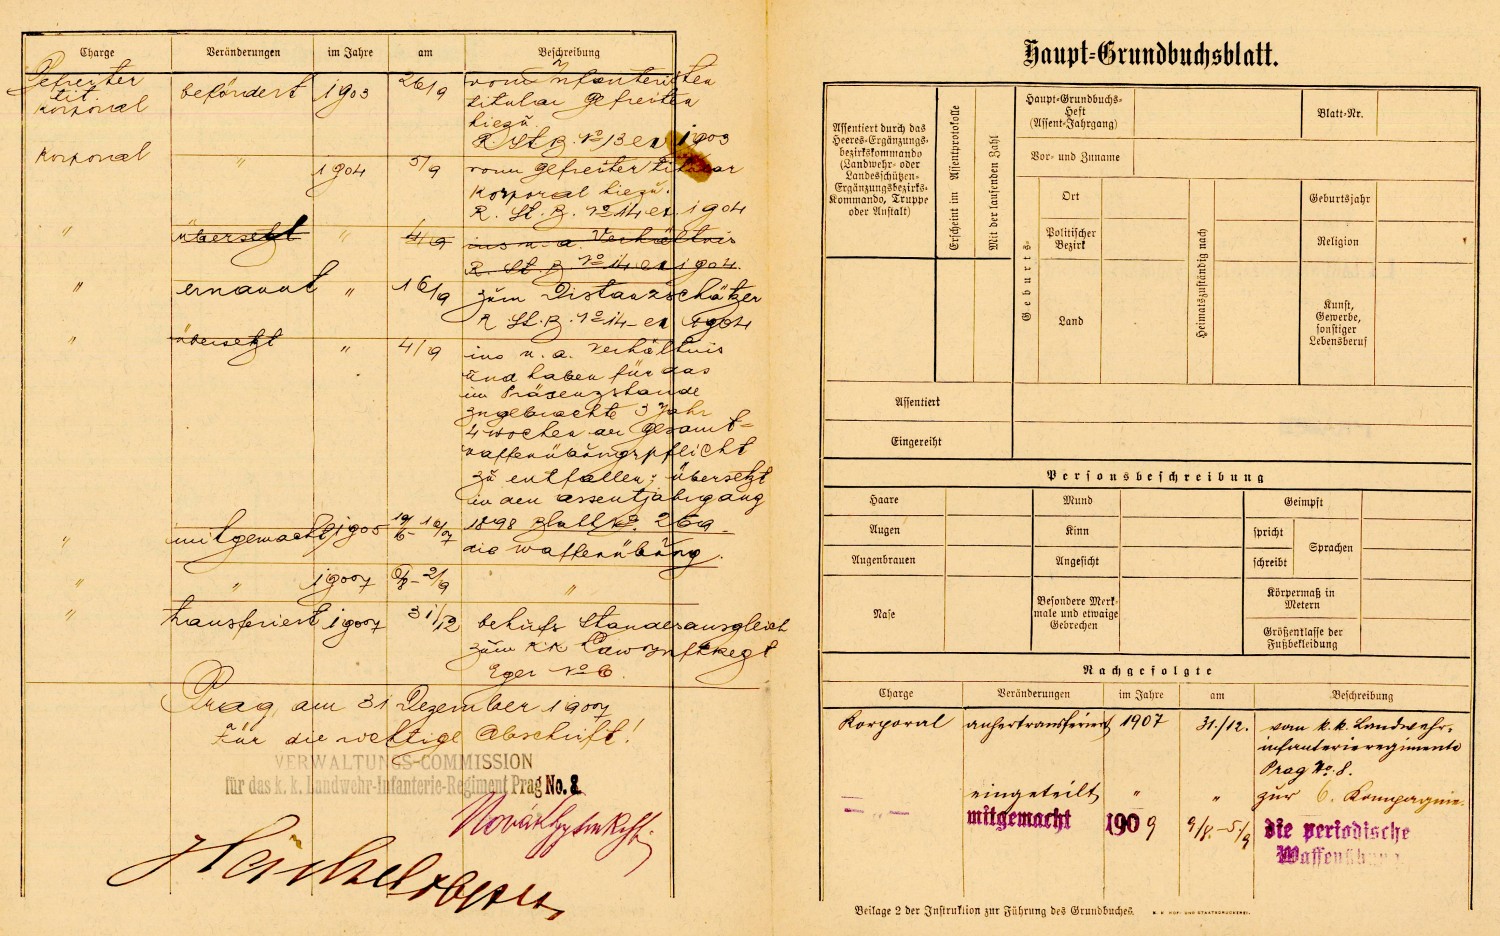 Charge Veränderungen im Jahre am Beschreibung
Gefreiter befördert 1903 26/9 vom Infanteristen
tit. titular Gefreiten
Korporal hiezu
R. St. B. No 13 ex 1903
Korporal " 1904 5/9 vom Gefreiter titular
Korporal hiezu.
R. St. B. No 14 ex 1904
" übersetzt " 4/9 ins n. a. Verhältnis
R. St. B. No 14 ex 1904.
" ernannt " 16/9 zum Distanzschätzer
R. St. B. No 14 ex 1904
" übersetzt " 4/9 ins n. a. Verhältnis
und haben für das
im Präsenzstande
zugebrachte 3 Jahr
4 Wochen der Gesamt=
waffenübungspflicht
zu entfallen; übersetzt
in den Assentjahrgang
1898 Blatt No. 269.
" mitgemacht 1905 die Waffenübung.
" " 1907 "
" transferiert 1907 31/12 behufs Standesausgleich
zum k.k.
Eger No 6.
Prag, am 31 Dezember 1907
Für die richtige Abschrift!
VERWALTUNGS-COMMISSION
für das k. k. Landwehr-Infanterie-Regiment Prag No. 8.
Haupt-Grundbuchsblatt.
Assentiert durch das
Heeres-Ergänzungs-
bezirkskommando
(Landwehr- oder
Landesschützen-
Ergänzungsbezirks-
Kommando, Truppe
oder Anstalt)
Erscheint im Assentprotokolle
Mit der laufenden Zahl
Haupt-Grundbuchs-
Heft
(Assent-Jahrgang)
Blatt-Nr.
Vor- und Zuname
Geburts-
Ort
Politischer
Bezirk
Land
Heimatszuständig nach
Geburtsjahr
Religion
Kunst,
Gewerbe,
sonstiger
Lebensberuf
Assentiert
Eingereiht
Personsbeschreibung
Haare Mund Geimpft
Augen Kinn spricht Sprachen
Augenbrauen Angesicht schreibt
Nase
Besondere Merk-
male und etwaige
Gebrechen
Körpermaß in
Metern
Größenklasse der
Fußbekleidung
Nachgefolgte
Charge Veränderungen im Jahre am Beschreibung
Korporal anhertransferiert 1907 31./12. vom k. k. Landwehr-
infanterieregimente
Prag No. 8.
eingeteilt " " zur 6. Kompagnie.
mitgemacht 1909 9/8.-5/9 die periodische
Waffenübung
Beilage 2 der Instruktion zur Führung des Grundbuches. K. K. HOF- UND STAATSDRUCKEREI.